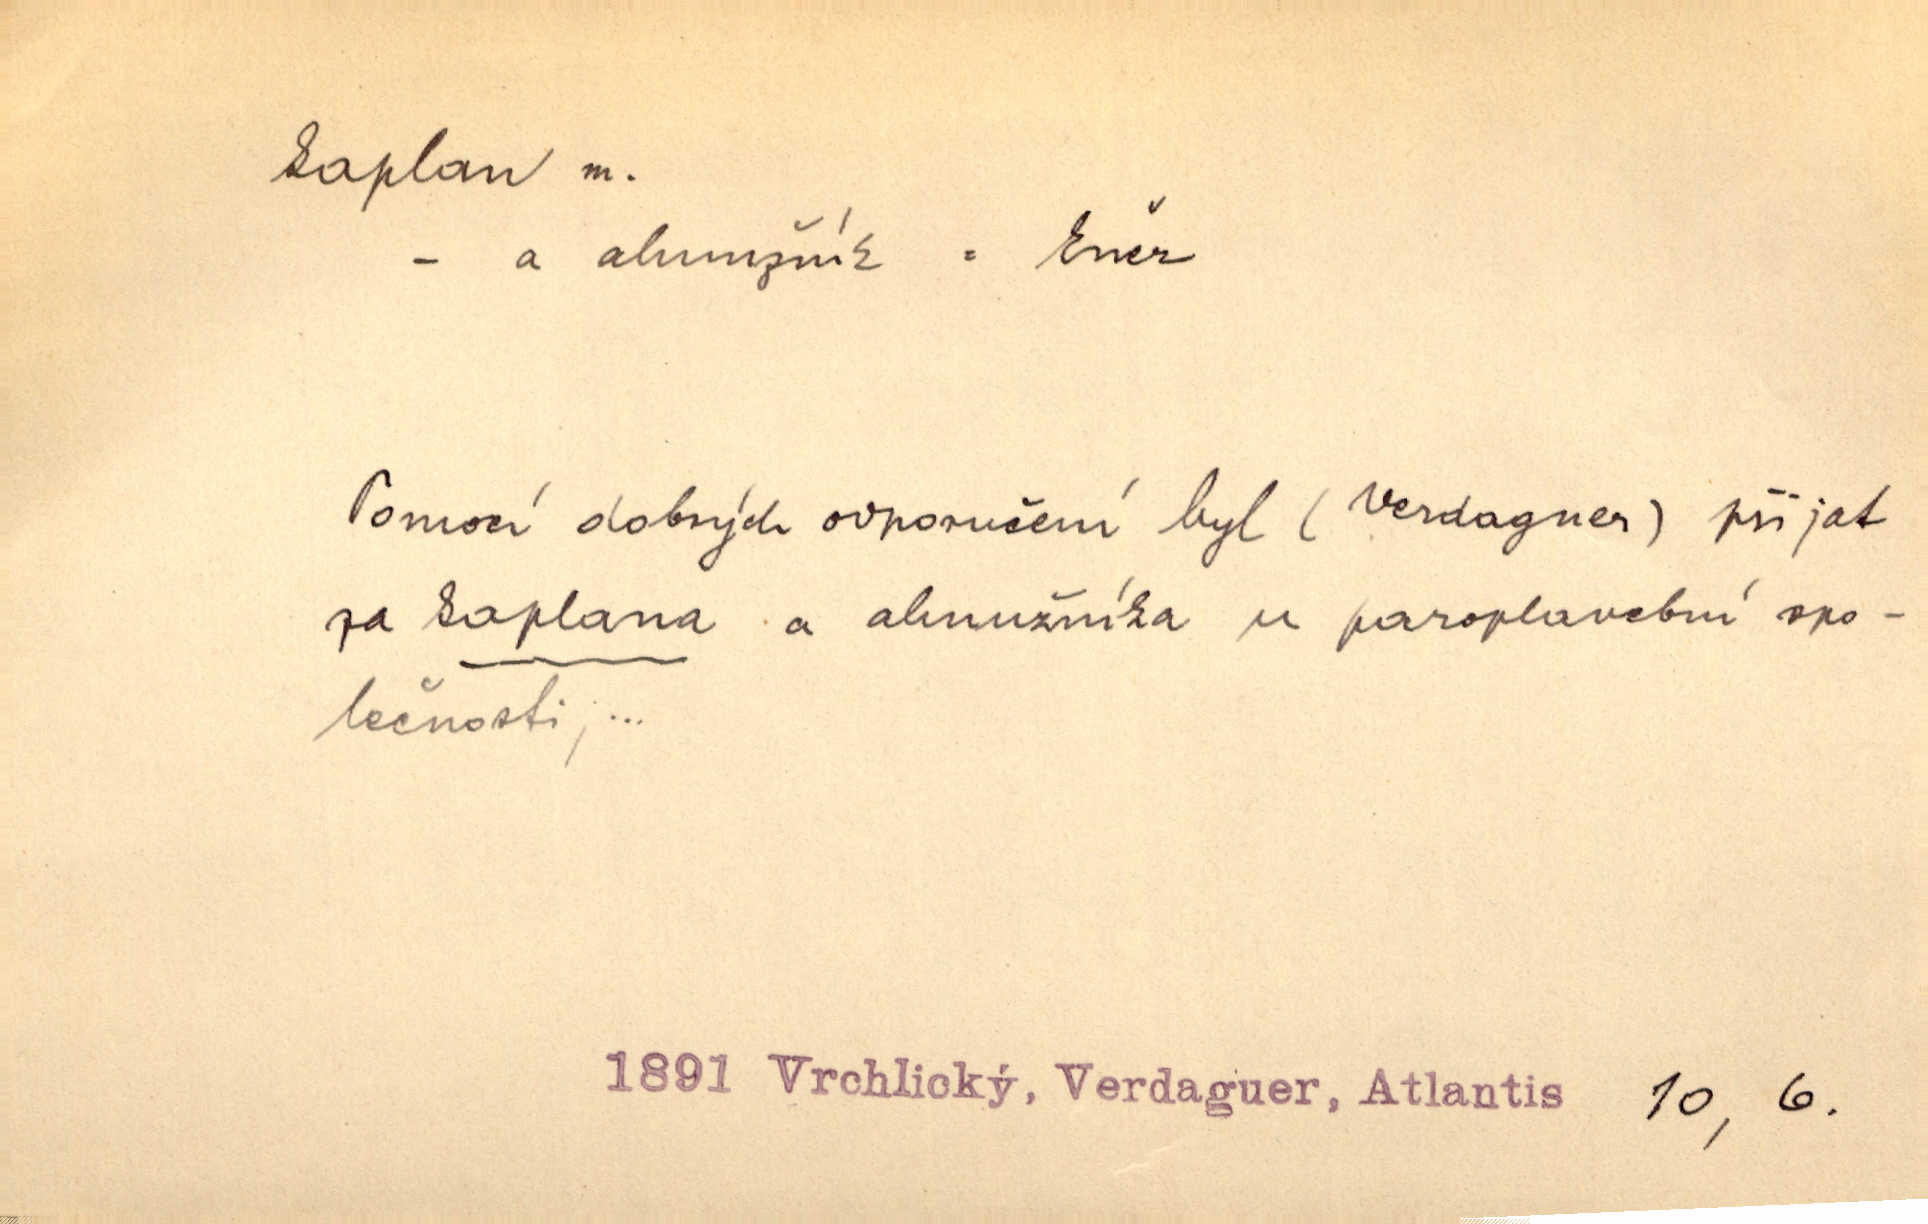 kaplan m.
- a almužník = kněz
Pomocí dobrých odporučení byl (Verdaguer) přijat
za kaplana a almužníka u paroplavební spo-
lečnosti, ...
1891 Vrchlický, Verdaguer, Atlantis 10, 6.